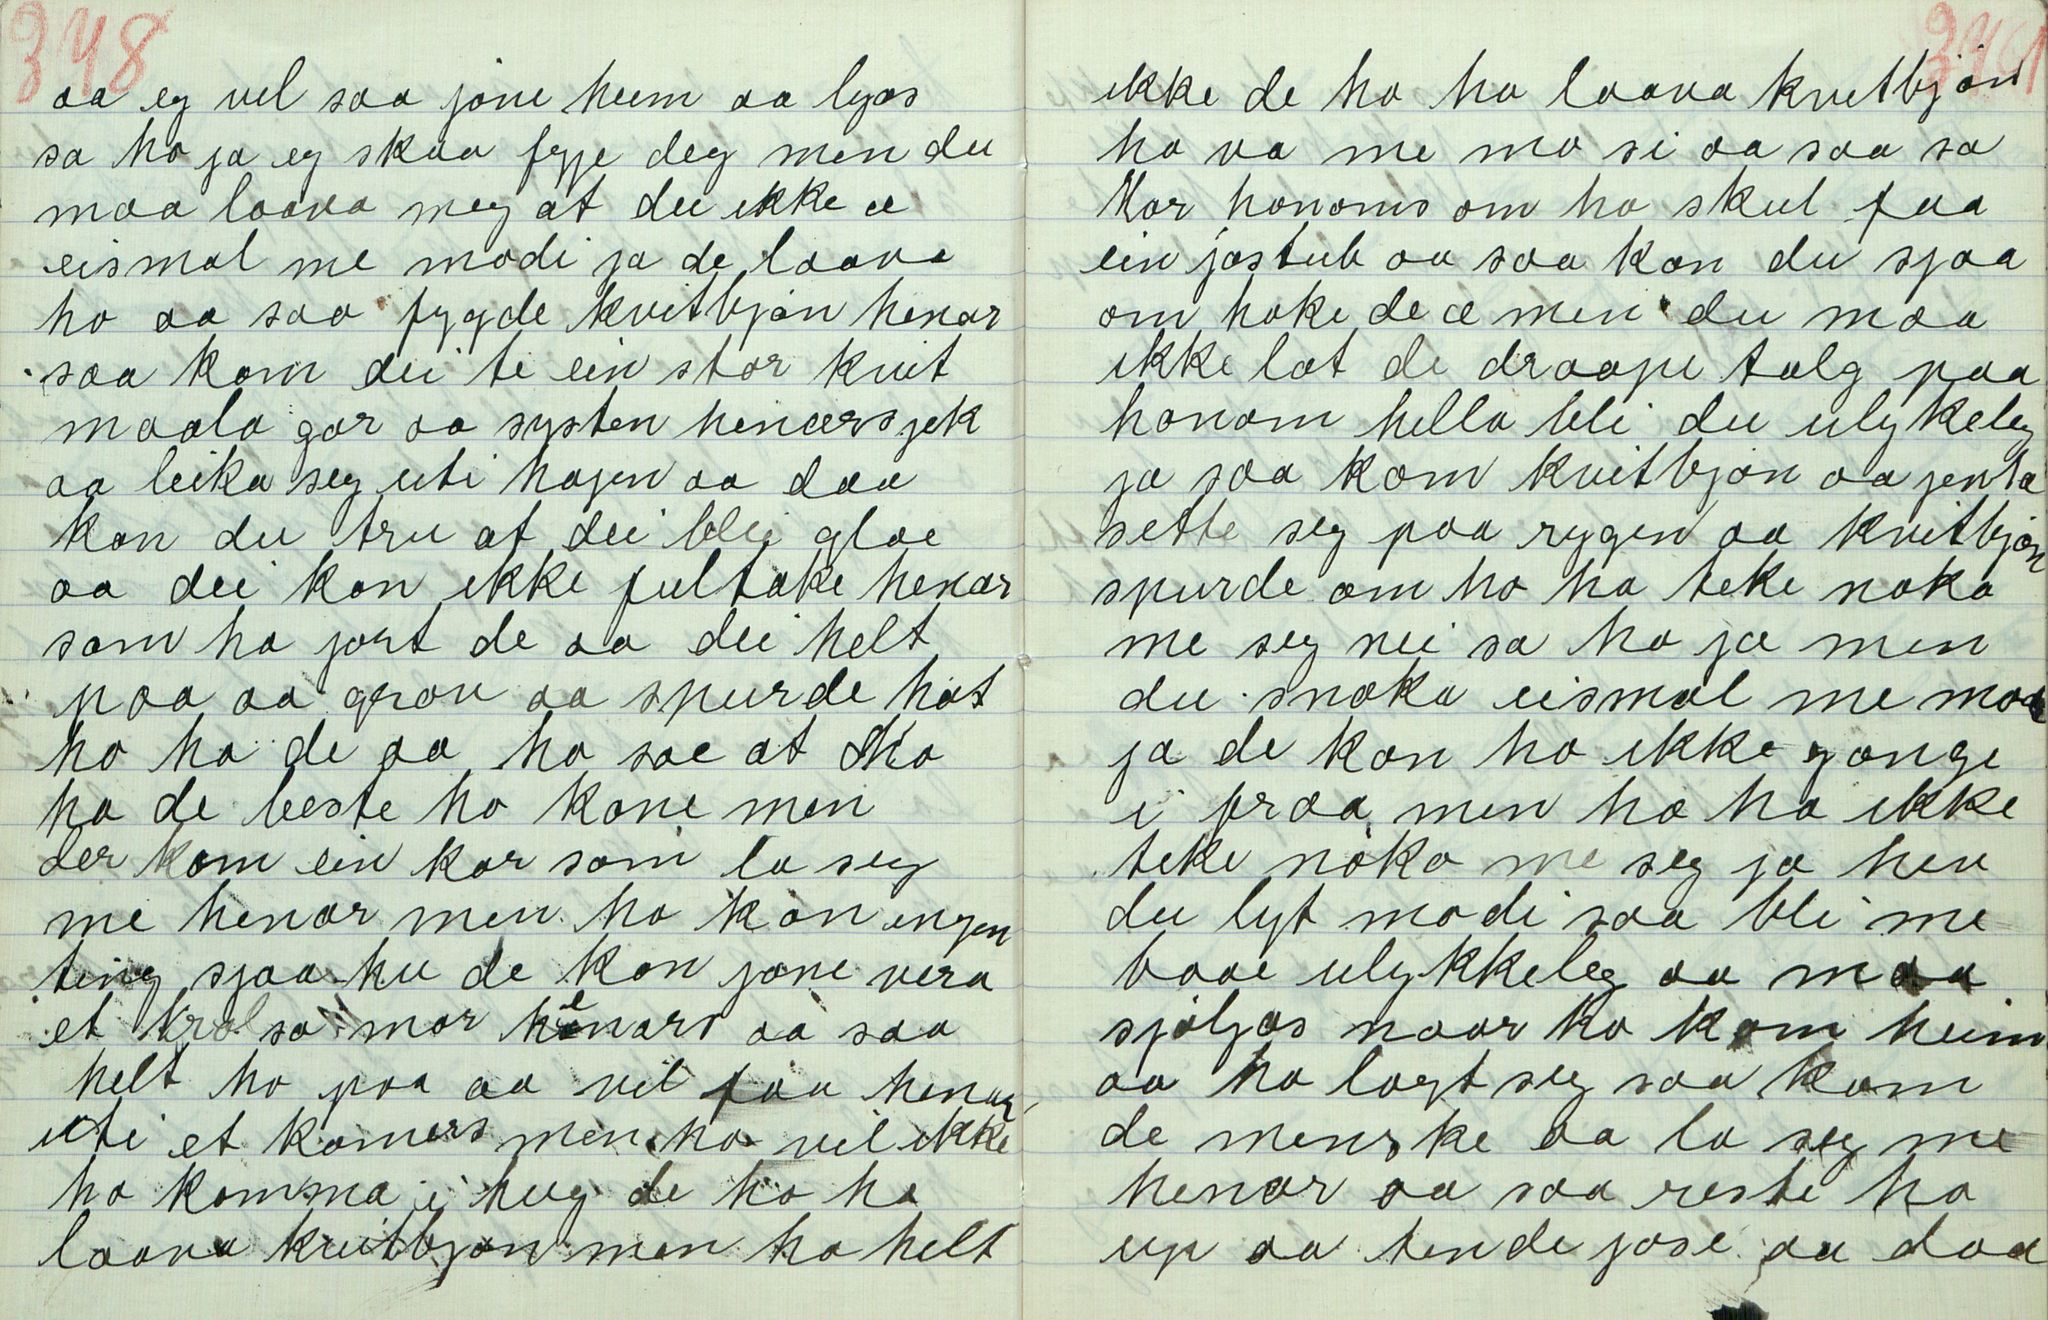 348
aa eg vil saa jøne heim aa lyas
sa ho ja eg skaa fyje deg men du
maa laava meg at du ikke æ
eismal me modi ja de laava
ho aa saa fygde kvitbjøn henar
saa kom dei te ein stor kvit
maala gar aa systen henærs jek
aa leika seg uti hagen aa daa
kan du tru at dei blei glae
aa dei kon ikke fultake henar
som ha jort de aa dei helt
paa aa grou aa spurde hat
ho ha de aa ho sae at ho
ha de beste ho kone men
der kom ein kar som la seg
me henar men ho kon engen
ting sjaa hu de kon jøne vera
et trol sa mor henars aa saa
helt ho paa aa vil faa henar
uti et komers men ho vil ikke
ho komma i hug de ho ha
laava kvitbjøn men ho helt
349
ikke de ho ha laava kvitbjøn
ho va me mo si aa saa sa
Mor honoms om ho skul faa
ein jøstub aa saa kan du sjaa
om hoke de æ men du maa
ikke lat de draape talg paa
honom hella bli du ulykeleg
ja saa kom kvitbjøn aa jenta
sette seg paa rygen aa kvitbjøn
spurde om ho ha teke noka
me seg nei sa ho ja men
du snaka eismal me moe
ja de kon ho ikke gonge
i fraa men ho ha ikke
teke noko me seg ja hev
du lyt modi saa bli me
baae ulykkeleg aa maa
sjøljas naar ho kom heim
aa ha lagt seg saa kom
de menske aa la seg me
henar aa saa reste ho
up aa tende jøse aa daa